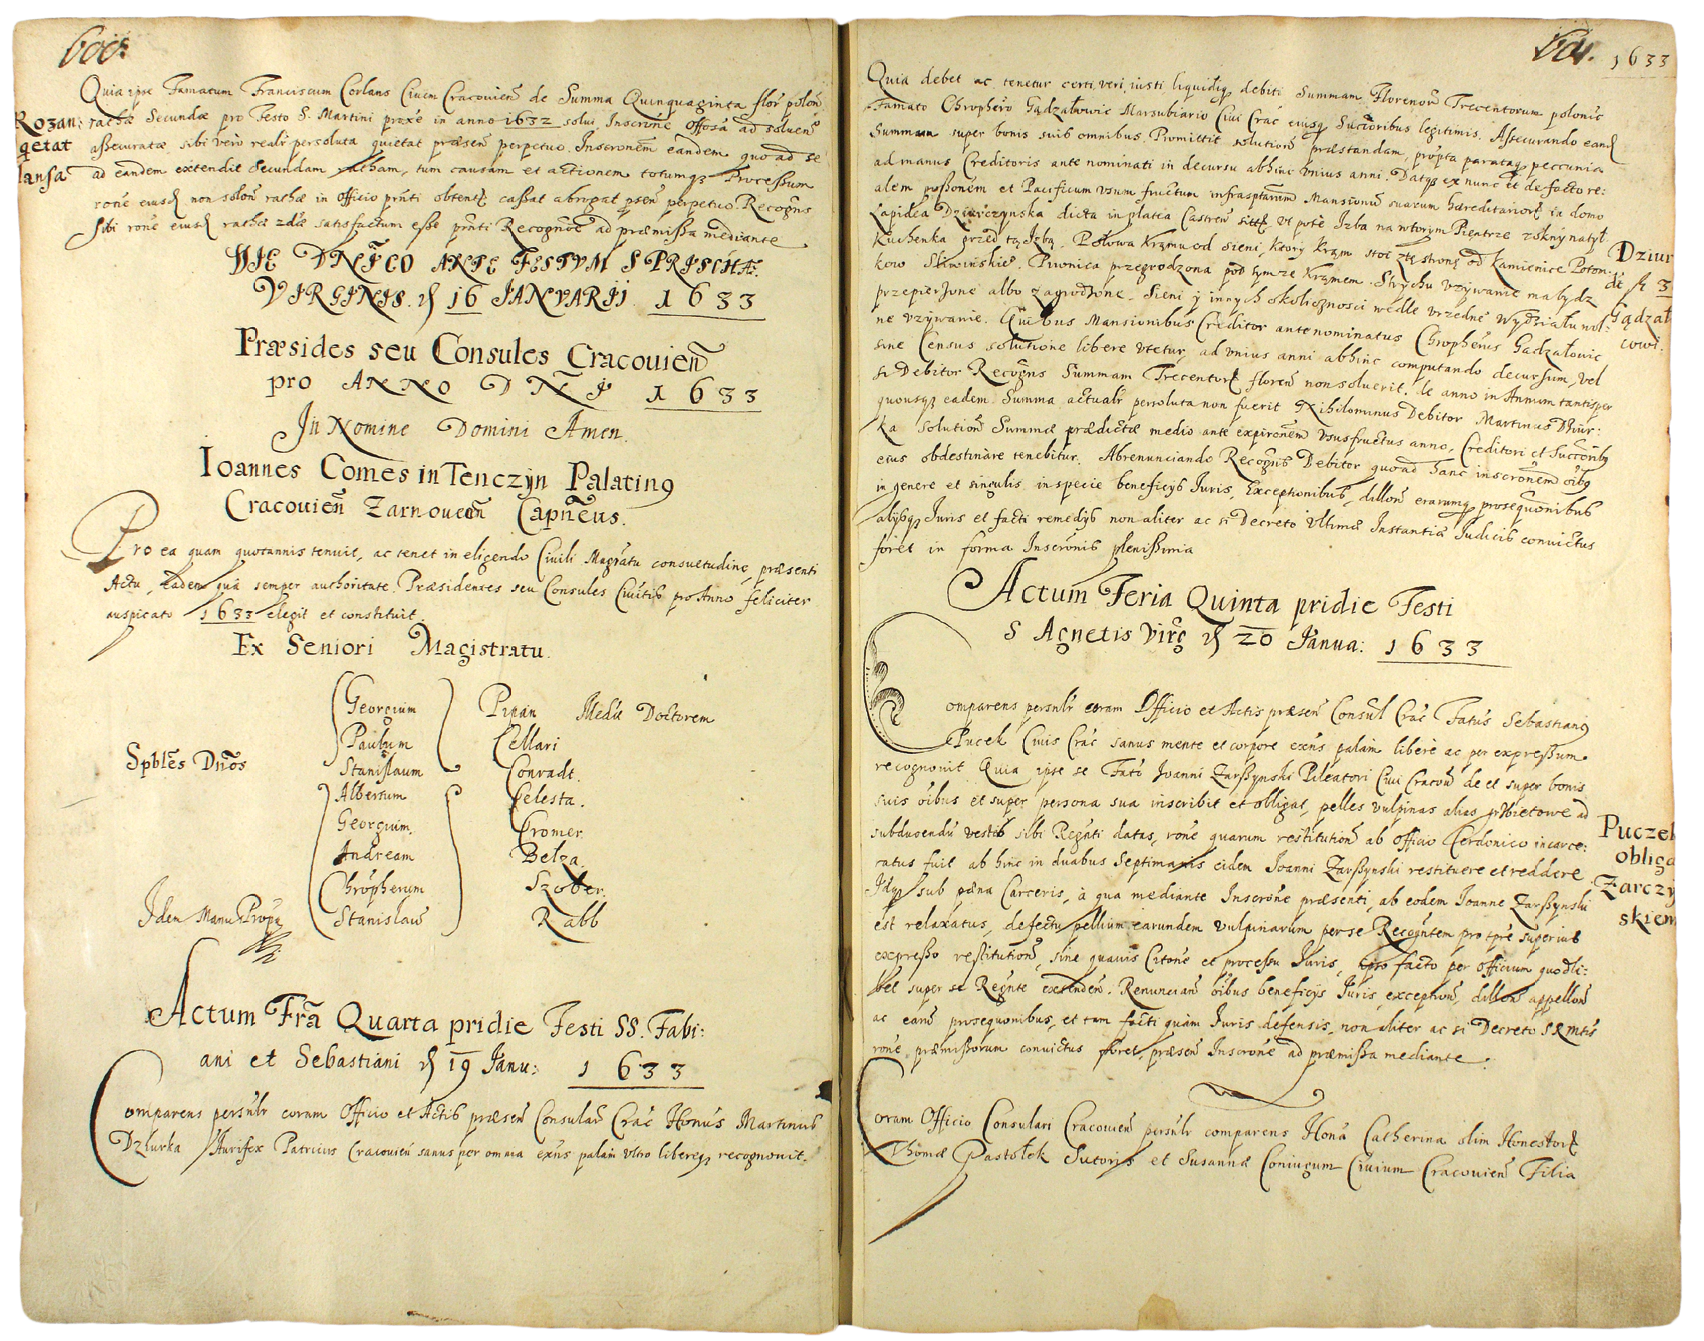 600.
Quia ipse Famatum Franciscum Corlans Civem Cracovień de Summa Quinquaginta flor̃ polon̄
Rozan:
rathæ Secundæ pro Festo S. Martini proxe in anno 1632 solui Inscrōne Offosa ad soluen̄
qetat
assecuratæ, sibi vero realr̄ persoluta quietat præsen̄ perpetuo. Inscronem eandem quo ad se
lansa
ad eandem extendit Secundam ratham, tum causam et actionem totumqȝ Processum
rōne eiusd̄ non solon̄ rathæ in Officio prn̄ti obtentȩ cassat abrogat psen̄ perpetuo. Recogn̄s
sibi rōne eiusd̄ rathæ 2dæ satisfactum esse prn̄ti Recognōe ad præmissa mediante
DIE DNICO ANTE FESTVM S PRISCHÆ
VIRGINIS. d 16 IANVARIJ 1633
Præsides seu Consules Cracovien̄
pro ANNO DNI 1633
In Nomine Domini Amen.
Ioannes Comes in Tenczyn Palatinꝯ
Cracovien̄ Zarnovecn̄ Capn̄eus.
Pro ea quam quotannis tenuit, ac tenet in eligendo Civili Magrātu consuetudinȩ, præsenti
Actu, Eadem quâ semper authoritate Præsidentes seu Consules Civitis pro Anno feliciter
auspicato 1633 elegit et constituit.
Ex Seniori Magistratu
Georgium Pipan Mediē Doctorem
Paulum Cellari
Spblēs Dn̄os
Stanislaum Conradt.
Albertum Celesta.
Georgium Cromer.
Andream Belza
Chrōpherum Szober.
Idem Manu Propa
Stanislaū Rabb
Actum Frā Quarta pridie Festi SS. Fabi:
ani et Sebastiani d 19 Janu: 1633
Comparens persnl̄r coram Officio et Actis præsen̄ Consulaū Crac̄ Honūs Martinus
Dziurka Aurifex Patricius Cracovien̄ sanus per omnia exn̄s palām vltro libereqȝ recognovit.
601. 1633
Quia debet ac tenetur certi, veri, iusti liquidiqȝ debiti Summam Florenoū Trecentorum polonic̄
Famato Chrophero Gądzałowic Marsubiario Civi Crac̄ eiusqȝ Succoribus legitimis. Assecurando eand̄
Summam super bonis suis omnibus. Promittit solution̄ præstandam, prōpta parataqȝ peccunia
ad manus Creditoris ante nominati in decursu abhinc vnius anni. Datqȝ ex nunc et defacto re:
alem possōnem et Pacificum vsum fructum infrasptārum Mansionū suarum hæreditarioꝝ in domo
Lapidea Dziurczynska dicta in platea Castren̄ sitȩ. Vt pote Izba na wtorym Piętrze z okny na tył
Kuchenka przed tą Izbą. Połowa Krzmu od sieni, ktory Krzm stoi z tȩ stronȩ od Kamienice Poton:
Dziur
kow Słowinskie. Piwnica przegrodzona pod tymze Krzmem. Strychu vzywanie małydz
de fl 3
przepierzone albo zagrodzone. Sieni y innych okolicznosci wedle vrzedne Wydziału vol:
Gądzał
ne vzywanie. Quibus Mansionibus Creditor ante nominatus Chropherus Gadzałowic
cowi.
sine Census solutione libere vtetur, ad vnius anni abhinc computando decursum, vel
si Debitor Recogn̄s Summam Trecentoꝝ floren̄ non soluerit. de anno in Annum tantisper
quousqȝ eadem Summa actuālr persoluta non fuerit. Nihilominus Debitor Martinus Dziur:
ka Solution̄ Summæ prædictæ medio ante expirōnem Vsusfructus anno, Creditori et Succoribꝯ
eius obdestināre tenebitur. Abrenunciando Recogn̄s Debitor quoad hanc inscrōnem oībꝯ
in genere et singulis in specie beneficijs Iuris, Exceptionibus, dillon̄ erarumqȝ prosequōnibus
alijsqȝ Iuris et facti remedijs non aliter ac si Decreto Vltimæ Instantiæ Iudicis convictus
foret in forma Inscrōnis plenissima
Actum Feria Quinta pridie Festi
S Agnetis Virg̃ d 20 Janua: 1633
Comparens persnl̄r coram Officio et Actis præsen̄ Consul Crac̄ Fatūs Sebastianꝯ
Pucek Civis Crac̄ sanus mente et corpore exn̄s palām liberè ac per expressum
recognovit Quia ipse se Fatō Joanni Zarszynski Pileatori Civi Cracov̄ de et super bonis
suis oībus et super persona sua inscribit et obligat, pelles vulpinas alias grzbietowe ad
Puczek
subducendū vestes sibi Regn̄ti datas, rōne quarum restitution̄ ab Officio Cerdonico incarce:
obliga
ratus fuit ab hinc in duabus Septimanis eidem Joanni Zarszynski restituere et reddere
Zarczy
Idqȝ sub pæna Carceris, à qua mediante Inscrōne præsenti, ab eodem Joanne Zarszynski
skiem
est relaxatus, defectu pellium earundem vulpinarum per se Recogn̄tem pro tp̄re superius
expresso restitution̄, sine quauis Citōne et processu Iuris, ipso facto per Officium quodli:
bet super se Regn̄te extenden̄. Renuncian̄ oībus beneficijs Iuris, exception̄, dillon̄ appellon̄
ac earū prosequonibus, et tam facti quàm Iuris defensis, non aliter ac si Decreto SRMtis
rōne præmissorum convictus foret, præsen̄ Inscrōne ad præmissa mediante.
Coram Officio Consulari Cracovien̄ persnl̄r comparens Honā Catherina olim Honestoꝝ
Thomæ Pastołek Sutoris et Susannæ Coniugum Civium Cracovien̄ Filia